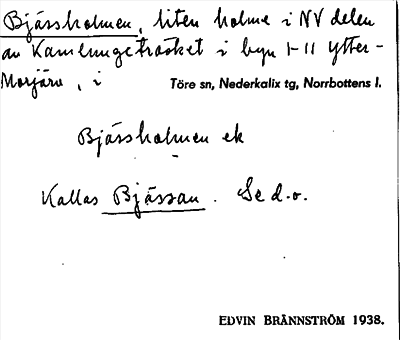 Bjässholmen, liten holme i NV delen
av Kamlungeträsket i byn 1-11 Ytter-
Morjärv, i Töre sn, Nederkalix tg, Norrbottens l.
Bjässholmen ek
Kallas Bjässan. Se d.o.
EDVIN BRÄNNSTRÖM 1938.